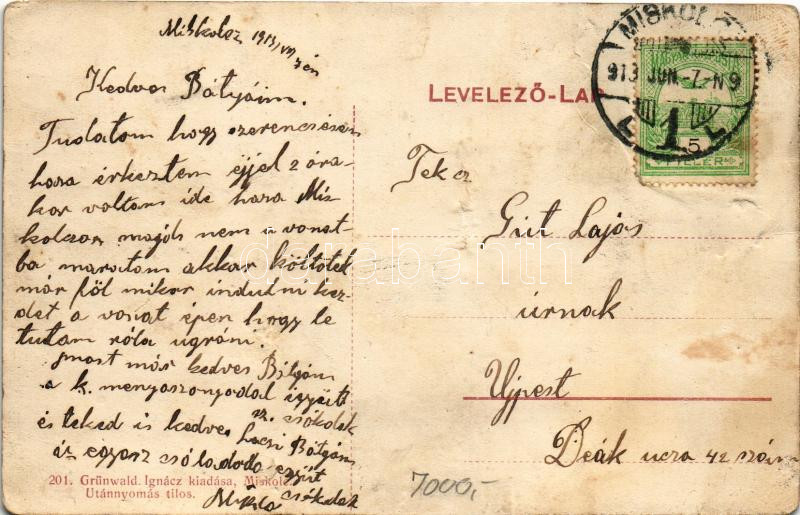 Miskolcz 1913 VII 7 én
Kedves Bátyáim.
Tudatom hogy szerencsésen
haza érkeztem éjjel 2 óra-
kor voltam ide haza Mis-
kolczon majds nem a vonat-
ba maradtam akkor költötek
már föl mikor indulni kez-
det a vonat épen hogy le
tudtam róla ugrani.
most már kedves Bátyám
a k. menyasszonyodal együtt
és teked is kedves
sz. csókolok
Laczi Bátyám
az egész családoddal együtt
csókolak
LEVELEZŐ-LAP
MISKOLC
913 JUN -7.-N9
1
5
FILLÉR
L L
Teke
Güt Lajos
úrnak
Ujpest
Deák ucza 42 szám
201. Grünwald Ignácz kiadása, Miskolc.
Utánnyomás tilos.
7000,-
darabanth